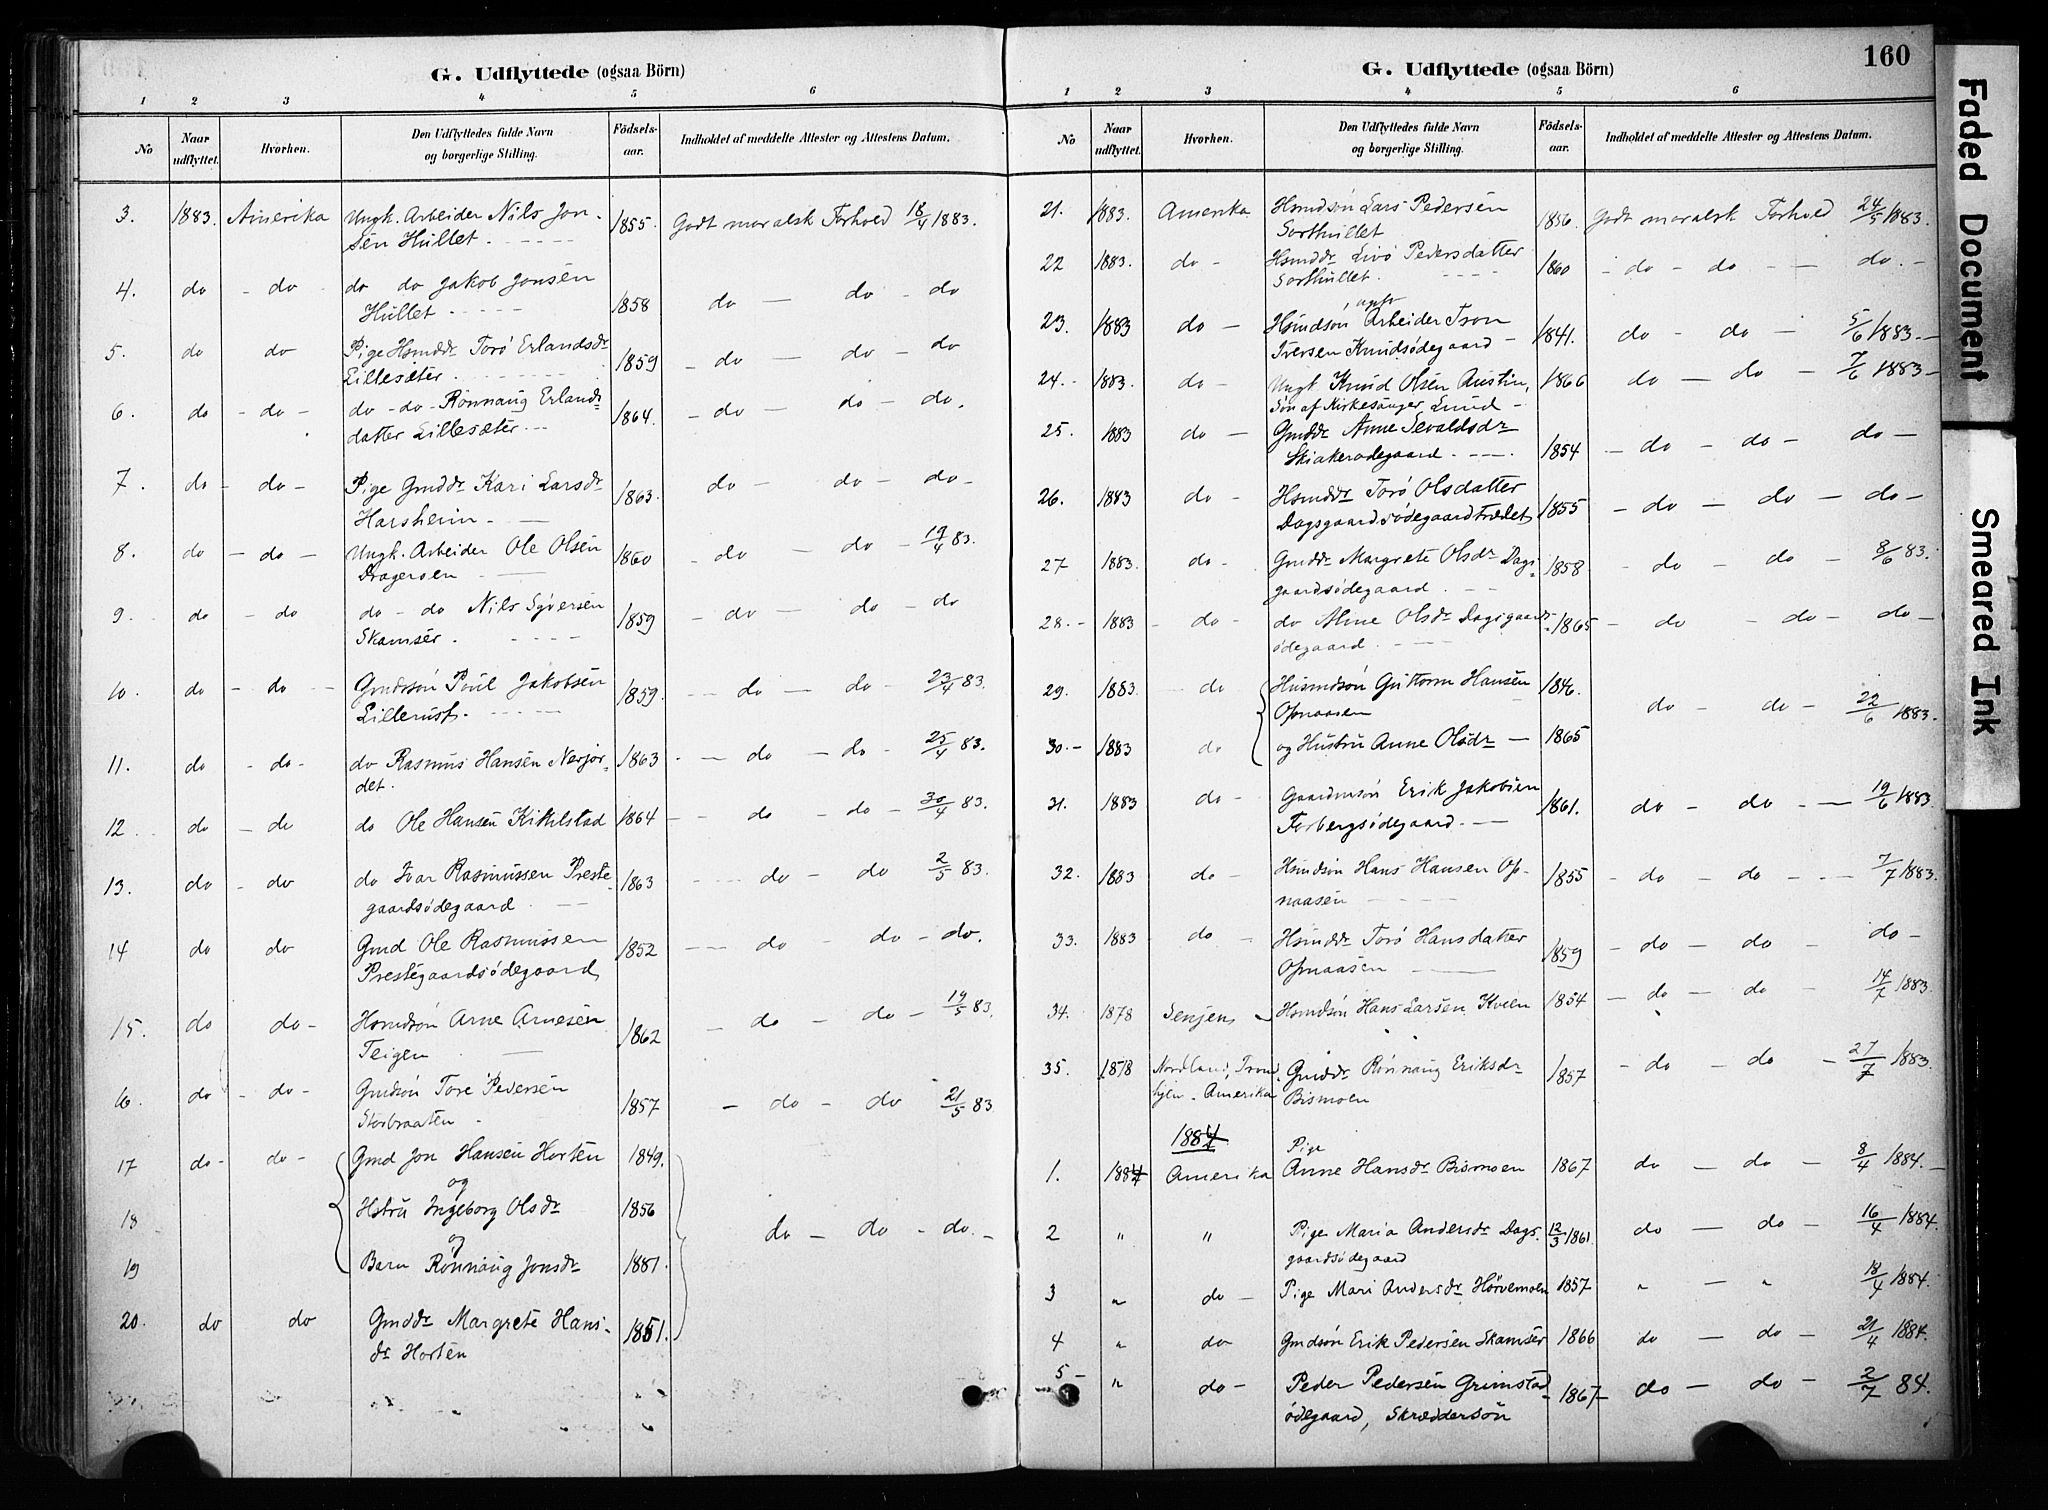 G. Udflyttede (ogsaa Börn)
1 2 3 4 5 6
No Naar udflyttet. Hvorhen. Den Udflyttedes fulde Navn og borgerlige Stilling. Födselsaar. Indholdet af meddelte Attester og Attestens Datum.
3. 1883. Amerika Ungk. Arbeider Nils Jon- 1855. Godt moralsk Forhold 18/4 1883.
sen Hullet.
4. do - do do do Jakob Jonsen
Hullet 1858 do — do - do
5. do do Pige Hsmddr Torö Erlandsdr
Lillesæter 1859 - do — do - do
6. do - do - do - do - Rönnaug Erlands
datter Lillesæter 1864. - do — do - do.
7. do - do - Pige Gmddr Kari Larsdr 1863. do — do - do -
Harsheim
8. do - do - Ungk. Arbeider Ole Olsen 1860 - do — do - 19/4 83.
Drageroen
9. do - do do - do Nils Syversen 1859 - do — do - do
Skamser.
10. do - do - Gmdssön Poul Jakobsen 1859. - do — do - 23/4 83.
Lillerust.
11. do - do - do Rasmus Hansen Nerjor- 1863 - do - do - 25/4 83.
det.
12 do - do do Ole Hansen Kittilstad 1864 - do - do - 30/4 83.
13. do - do do Ivar Rasmussen Preste- 1863 - do - do 2/5 83.
gaardsödegaard
14 do do Gmd Ole Rasmussen 1852 - do - do - do.
Prestegaardsödegaard
15. do do - Hsmdsön Arne Arnesen 1862 - do - do - 19/5 83.
Teigen
16. do - do - Gmdsön Tore Pedersen 1857 - do - do 21/5 83
Storbraaten
17 do - do - Gmd Jon Hansen Horten 1849.
og
18 Hstru Ingeborg Olsdr 1856 do - do - do. -
og
19 Barn Rönnaug Jonsdr 1881.
20. do do Gmddr Margrete Hans- 1851.
dr Horten
160
G. Udflyttede (ogsaa Börn)
1 2 3 4 5 6
No Naar udflyttet. Hvorhen. Den Udflyttedes fulde Navn og borgerlige Stilling. Födselsaar. Indholdet af meddelte Attester og Attestens Datum.
21. 1883. Amerika Hsmdsön Lars Pedersen 1856. Godt moralsk Forhold 24/5 1883.
Sorthullet
22 1883. do - Hsmddr Livö Pedersdatter 1860 - do - do - do. -
Sorthullet.
23. 1883 do - Hsmdsön Arbeider Tron 1841. do - do - 5/6 1883. -
Iversen Knudsödegaard -
24. - 1883. do - Ungk Knud Olsen Austin, 1866 do — do - 7/6 1883 -
Sön af Kirkesanger Lund -
25. 1883 do - Gmddr Anne Sevaldsdr
Skiakerødegaard 1854 - do - do - do -
26. 1883 do - Hsmddr Torö Olsdatter
Dagsgaardsödegaardtrædet 1855 - do - do - do -
27 1883. do - Gmddr Margrete Olsdr Dags- 1858 - do - do - 8/6 83.
gaardsödegaard.
28. - 1883 - do - do Anne Olsdr Dagsgaards- 1865 - do - do - do -
ödegaard.
29. 1883. do Husmdsön Guttorm Hansen 1846.
Opnaasen do - do - 22/6 1883.
30. - 1883 do og Hustru Anne Olsdr - 1865
31. 1883 do - Gaardmsön Erik Jakobsen 1861. do - do - 19/6 1883.
Forbergsödegaard.
32. 1883 do - Hsmdsön Hans Hansen Op- 1855 - do - do - 7/7 1883.
naasen
33. 1883 do - Hsmddr Torö Hansdatter 1859 - do - do - do -
Opnaasen
34. 1878 Senjen Hsmdsön Hans Larsen Kveen 1854 - do - do - 14/7 1883.
35. 1878 Nordland, Trond Gmddr Rönnaug Eriksdr 1857 - do - do - 27/7 1883.
hjem - Amerika Bismoen
1884
Pige
1. 1884 Amerika Anne Hansdr Bismoen 1867 do - do - 8/4 1884. -
2 " " Pige Maria Andersdr Dags- 12/3 1861 do - do - 16/4 1884.
gaardsödegaard
3 " do - Pige Mari Andersdr Hörvemoen 1857 " - " 18/4 1884.
4 " do Gmdsön Erik Pedersen Skamser 1866 do - do - 21/4 1884.
5 - " do - Peder Pedersen Grimstad 1867 - do - do - 2/7 84.
ödegaard, Skræddersön
Faded Document
Smeared Ink